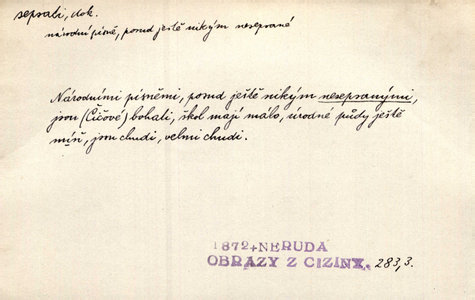 sepsati, dok.
národní písně, posud ještě nikým nesepsané
Národními písněmi, posud ještě nikým nesepsanými,
jsou (Čičové) bohati, škol mají málo, úrodné půdy ještě
míň, jsou chudi, velmi chudi.
1872+NERUDA
OBRAZY Z CIZINY. 283,3.